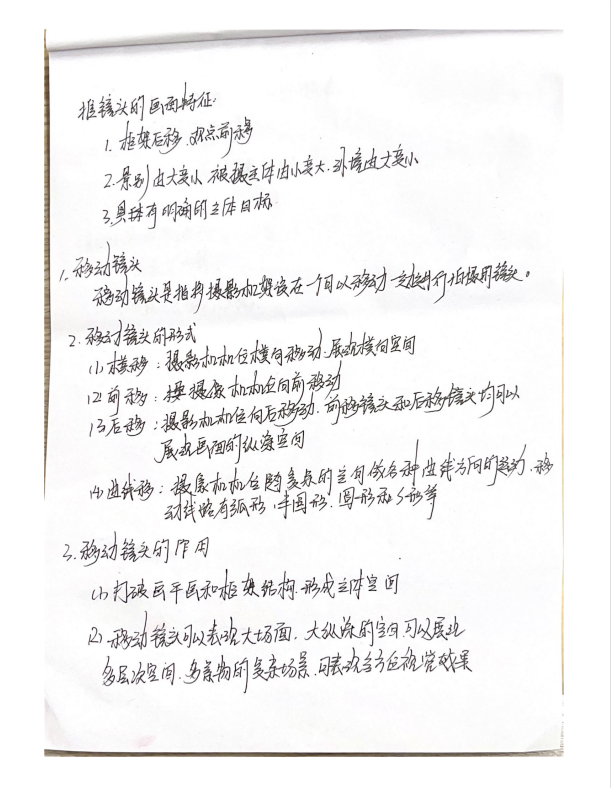 推镜头的画面特征:
1. 框架后移、观点前移
2. 景别由大变小、被摄主体由小变大、环境由大变小
3. 具有明确的主体目标
1. 移动镜头
移动镜头是指将摄影机架设在一个可以移动 进行拍摄的镜头。
2. 移动镜头的形式
(1) 横移: 摄影机机位横向移动、展现横向空间
(2) 前移: 摄像机机位向前移动
(3) 后移: 摄影机机位向后移动、前移镜头和后移镜头均可以
展现画面的纵深空间
(4) 曲线移: 摄像机机位随复杂的空间做各种曲线方向的运动、移
动线路有弧形、半圆形、圆形和S形等
3. 移动镜头的作用
(1) 打破画平面和框架结构、形成立体空间
(2) 移动镜头可以表现大场面、大纵深的空间、可以展现
多层次空间、多景物的复杂场景、可表现全方位视觉效果